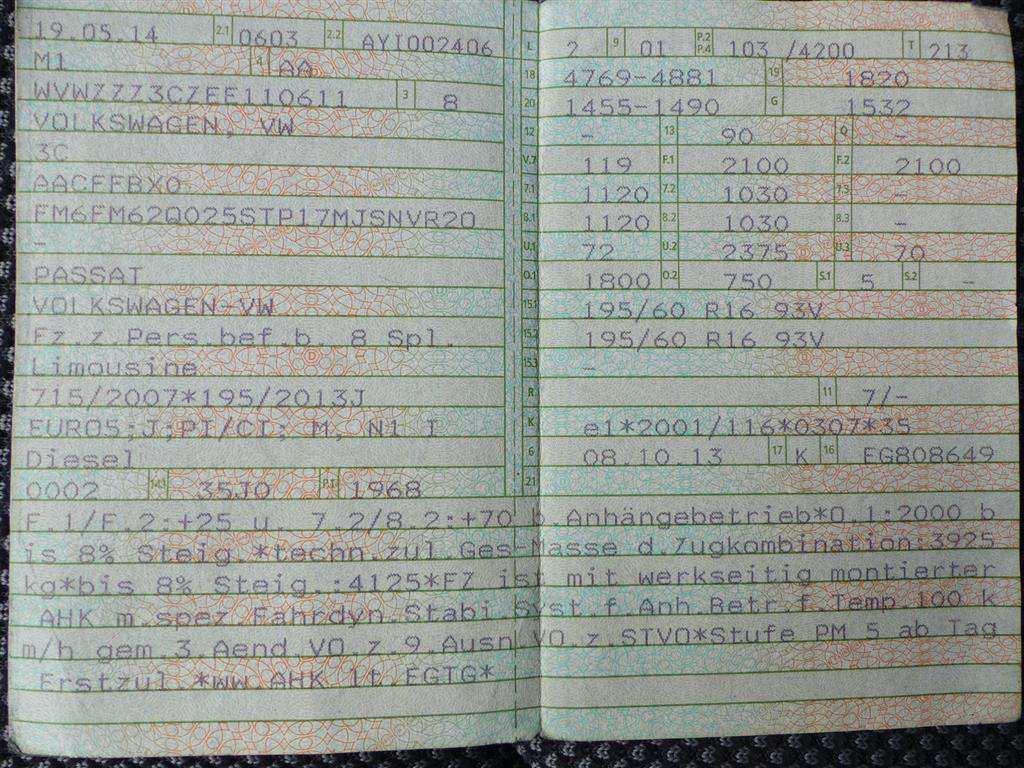 19.05.14 2.1 0603 2.2 AYI002406
M1 4 AA
WVWZZZ3CZEE110611 3 8
VOLKSWAGEN, VW
3C
AACFFBX0
FM6FM62Q025STP17MJSNVR20
-
PASSAT
VOLKSWAGEN-VW
Fz.z.Pers.bef.b. 8 Spl.
Limousine
715/2007*195/2013J
EURO5;J;PI/CI; M, N1 I
Diesel
0002 14.1 35J0 P.1 1968
L 2 9 01 P.2 P.4 103 /4200 T 213
18 4769-4881 19 1820
20 1455-1490 G 1532
12 - 13 90 Q -
V.7 119 F.1 2100 F.2 2100
7.1 1120 7.2 1030 7.3 -
8.1 1120 8.2 1030 8.3 -
U.1 72 U.2 2375 U.3 70
O.1 1800 O.2 750 S.1 5 S.2 -
15.1 195/60 R16 93V
15.2 195/60 R16 93V
15.3 -
R 11 7/-
K e1*2001/116*0307*35
6 08.10.13 17 K 16 EG808649
21
F.1/F.2:+25 u. 7.2/8.2:+70 b.Anhängebetrieb*O.1:2000 b
is 8% Steig.*techn.zul.Ges-Masse d.Zugkombination:3925
kg*bis 8% Steig.:4125*FZ ist mit werkseitig montierter
AHK m.spez.Fahrdyn.Stabi.Syst.f.Anh.Betr.f.Temp 100 k
m/h gem.3.Aend.VO.z.9.Ausn.VO.z.STVO*Stufe PM 5 ab Tag
Erstzul.*ww.AHK lt.EGTG*